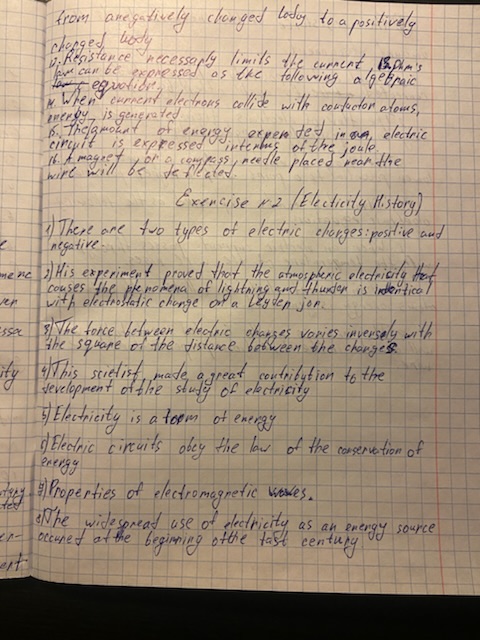 from a negatively changed body to a positively
changed body
12. Resistance necessaply limits the current 13. Ohm's
law can be expressed as the following algebraic
equation.
14. When current electrons collide with conductor atoms,
energy is generated
15. The amount of energy expended in an electric
circuit is expressed in terms of the joule.
16. A magnet or a compass needle placed near the
wire will be deflected.
Exercise №2 (Electicity History)
1) There are two types of electric changes: positive and
negative.
2) His experiment proved that the atmospheric electricity that
causes the phenomena of lightning and thunder is identical
with electrostatic change on a Leyden jar.
3) The force between electric changes varies inversely with
the square of the distance between the changes.
4) This scietist made a great contribution to the
development of the study of electricity
5) Electricity is a form of energy
6) Electric circuits obey the law of the conservation of
energy
7) Properties of electromagnetic waves.
8) The widespread use of electricity as an energy source
occured at the beginning of the last century